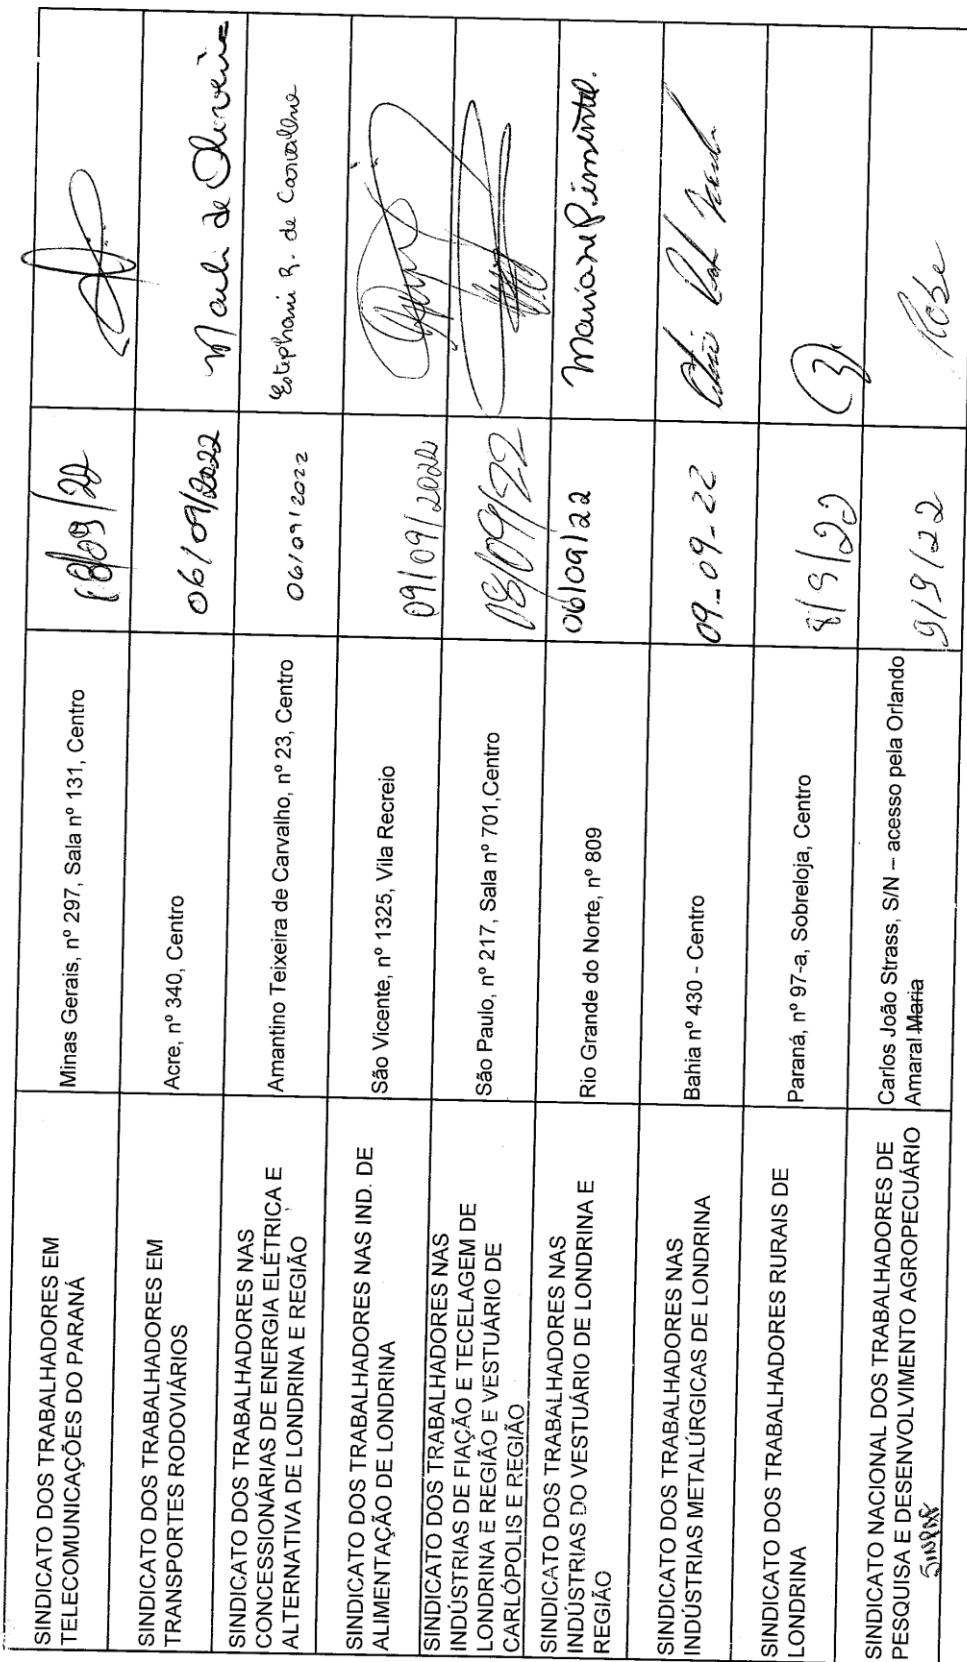 SINDICATO DOS TRABALHADORES EM
TELECOMUNICAÇÕES DO PARANÁ
Minas Gerais, nº 297, Sala nº 131, Centro
SINDICATO DOS TRABALHADORES EM
TRANSPORTES RODOVIÁRIOS
Acre, nº 340, Centro
06/09/2022
Marli de Oliveira
SINDICATO DOS TRABALHADORES NAS
CONCESSIONÁRIAS DE ENERGIA ELÉTRICA E
ALTERNATIVA DE LONDRINA E REGIÃO
Amantino Teixeira de Carvalho, nº 23, Centro
06/09/2022
Estephani R. de Carvalho
SINDICATO DOS TRABALHADORES NAS IND. DE
ALIMENTAÇÃO DE LONDRINA
São Vicente, nº 1325, Vila Recreio
09/09/2022
SINDICATO DOS TRABALHADORES NAS
INDÚSTRIAS DE FIAÇÃO E TECELAGEM DE
LONDRINA E REGIÃO E VESTUÁRIO DE
CARLÓPOLIS E REGIÃO
São Paulo, nº 217, Sala nº 701,Centro
08/09/22
SINDICATO DOS TRABALHADORES NAS
INDÚSTRIAS DO VESTUÁRIO DE LONDRINA E
REGIÃO
Rio Grande do Norte, nº 809
06/09/22
Mariane Pimentel.
SINDICATO DOS TRABALHADORES NAS
INDÚSTRIAS METALÚRGICAS DE LONDRINA
Bahia nº 430 - Centro
09-09-22
SINDICATO DOS TRABALHADORES RURAIS DE
LONDRINA
Paraná, nº 97-a, Sobreloja, Centro
8/9/22
SINDICATO NACIONAL DOS TRABALHADORES DE
PESQUISA E DESENVOLVIMENTO AGROPECUÁRIO
SINPAF
Carlos João Strass, S/N – acesso pela Orlando
Amaral Maria
9/9/22
Rose